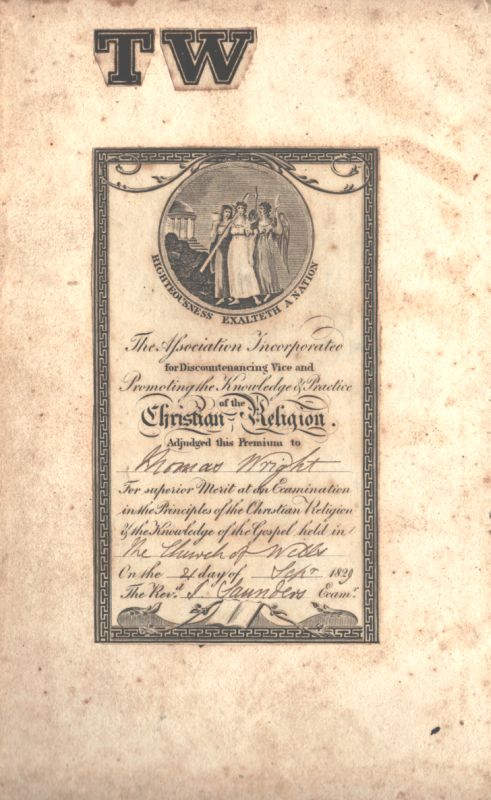 TW
RIGHTEOUSNESS EXALTETH A NATION
The Association Incorporated
for Discountenancing Vice and
Promoting the Knowledge & Practice
of the
Christian Religion.
Adjudged this Premium to
Thomas Wright
For superior Merit at an Examination
in the Principles of the Christian Religion
& the Knowledge of the Gospel held in
the Church of Wells
On the day of Sepr 1829
The Revd. S. Saunders Examr.